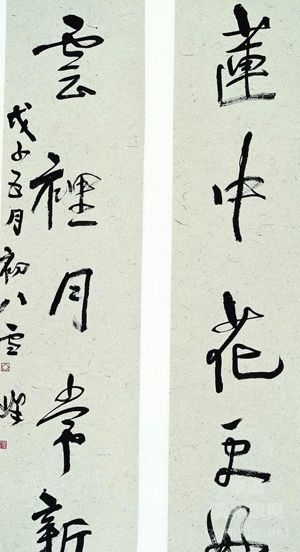 蓮中花更好
雲裡月常新
戊子五月初八雪